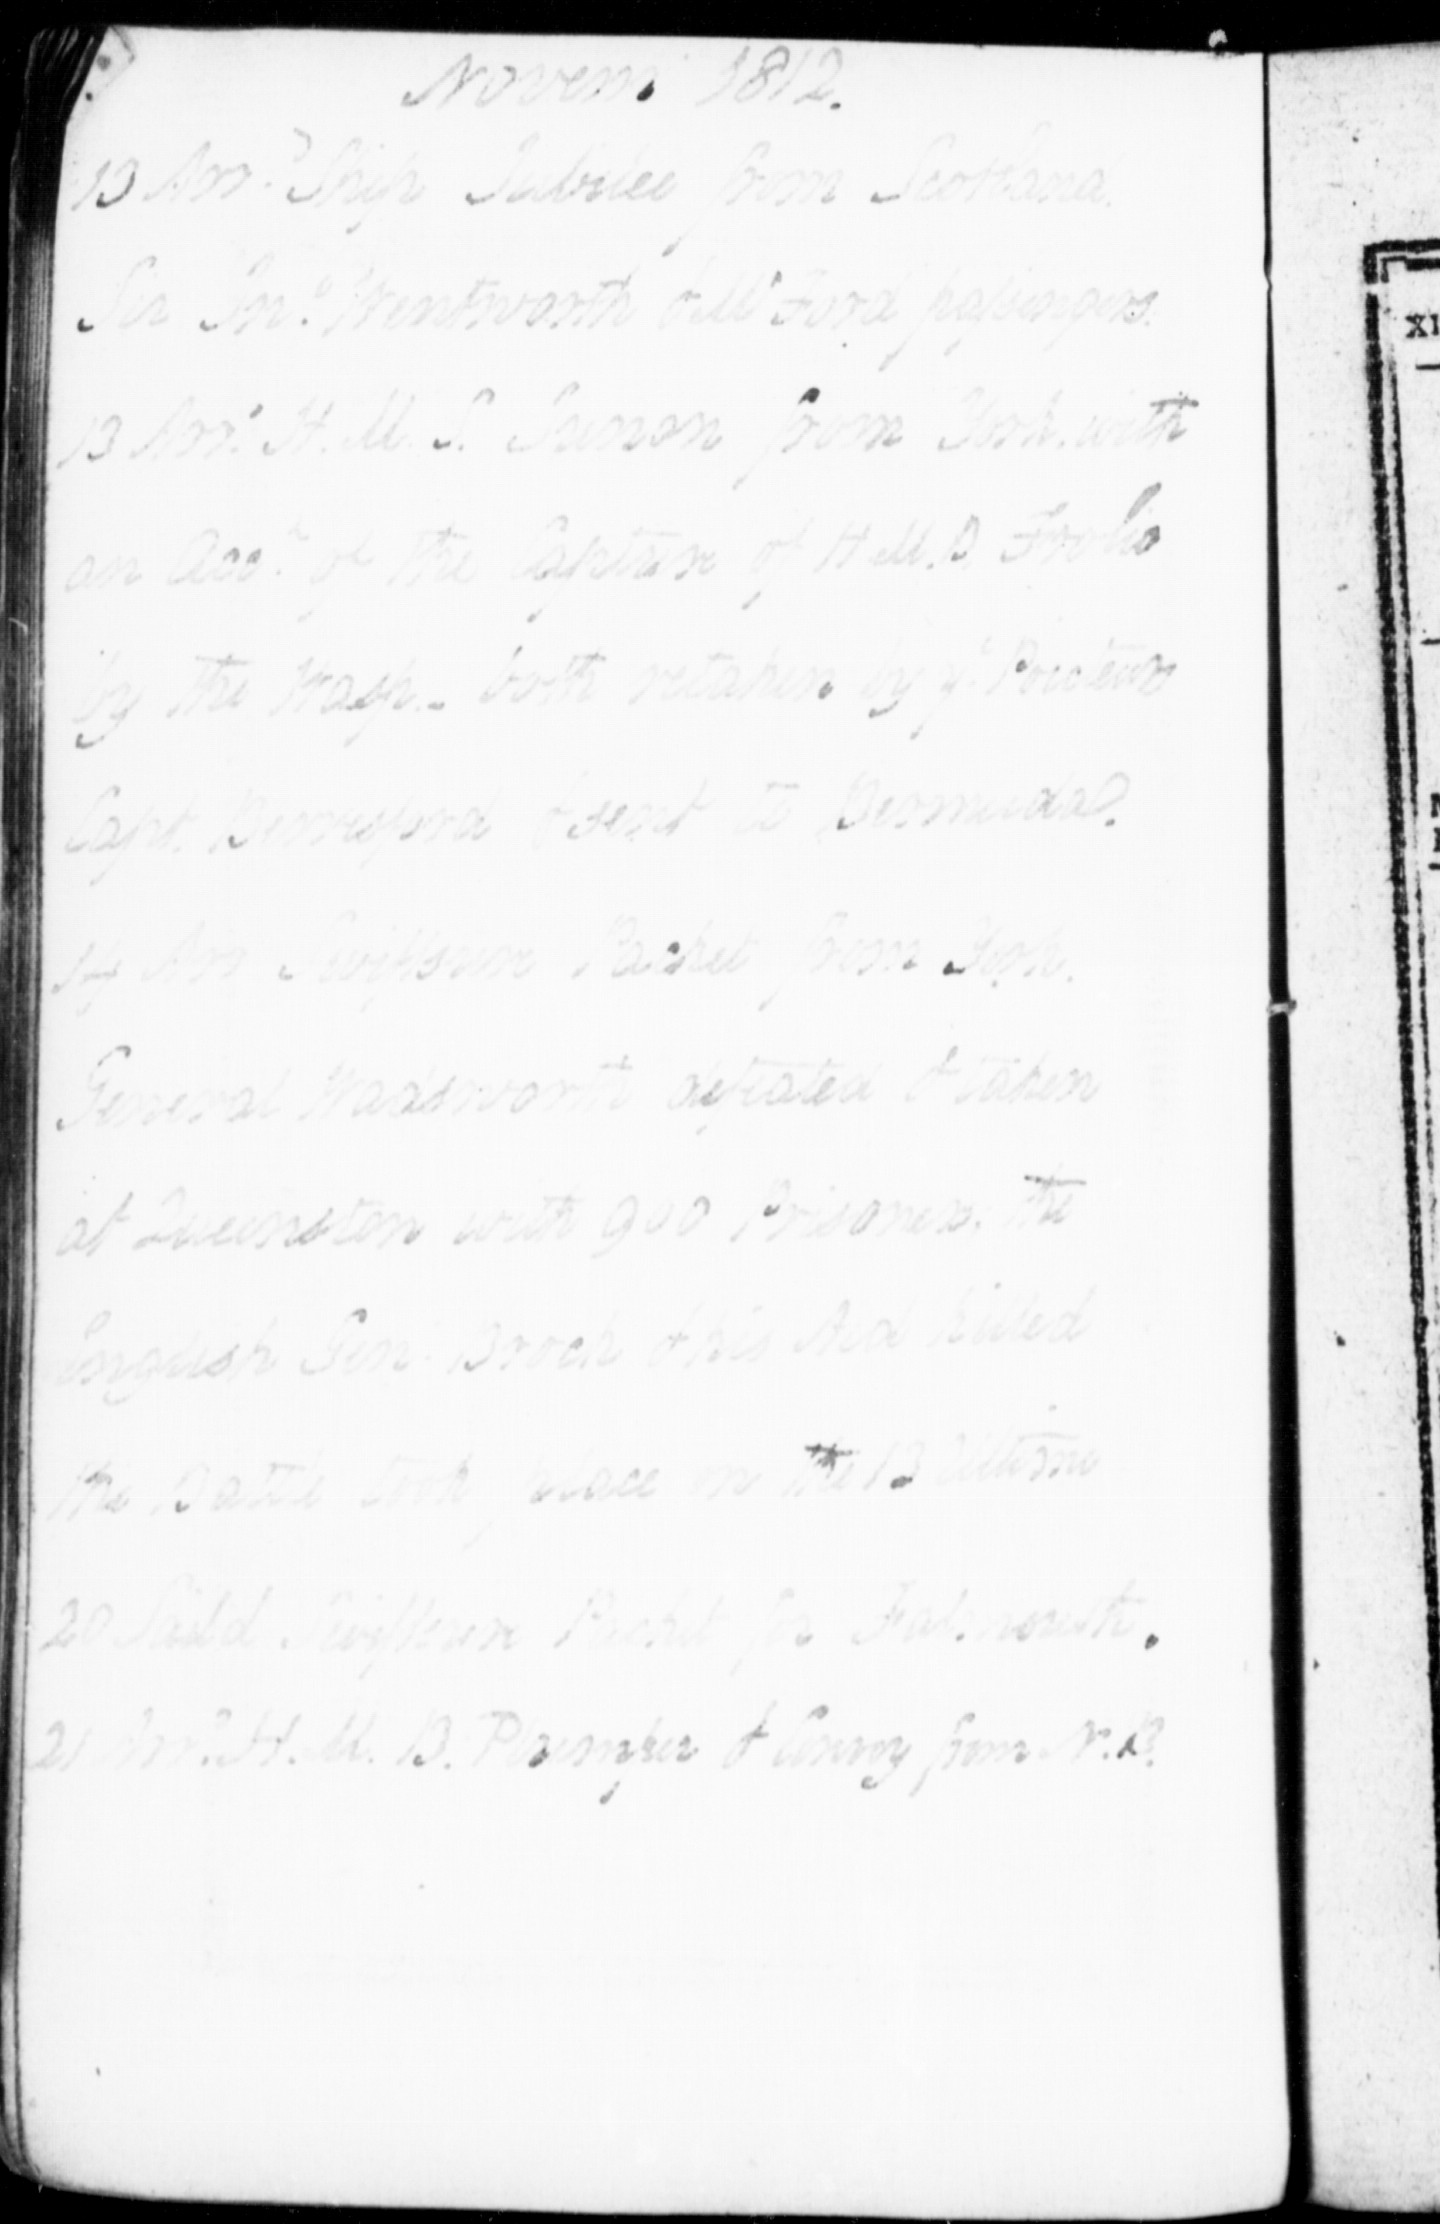 Novem. 1812.
13 Arr.d Ship Jubilee from Scotland.
Sir Jn.o Wentworth & Mr Ford passengers.
13 Arr.d H. M. S. Junon from York. with
an Acc.t of the Capture of H M. B. Frolic
by the Wasp.. both retaken by ye. Poictiers
Capt. Berresford & sent to Bermuda.
14 Arr Swiftsure Packet from York.
General Wadsworth defeated & taken
at Queenston with 900 Prisoners. the
English Gen. Brock & his Aid killed
the Battle took place on the 13 Ultimo
20 Sail'd Swiftsure Packet for Falmouth.
21 Arr.d H. M. B. Plumper & Convoy from N. B.
XI